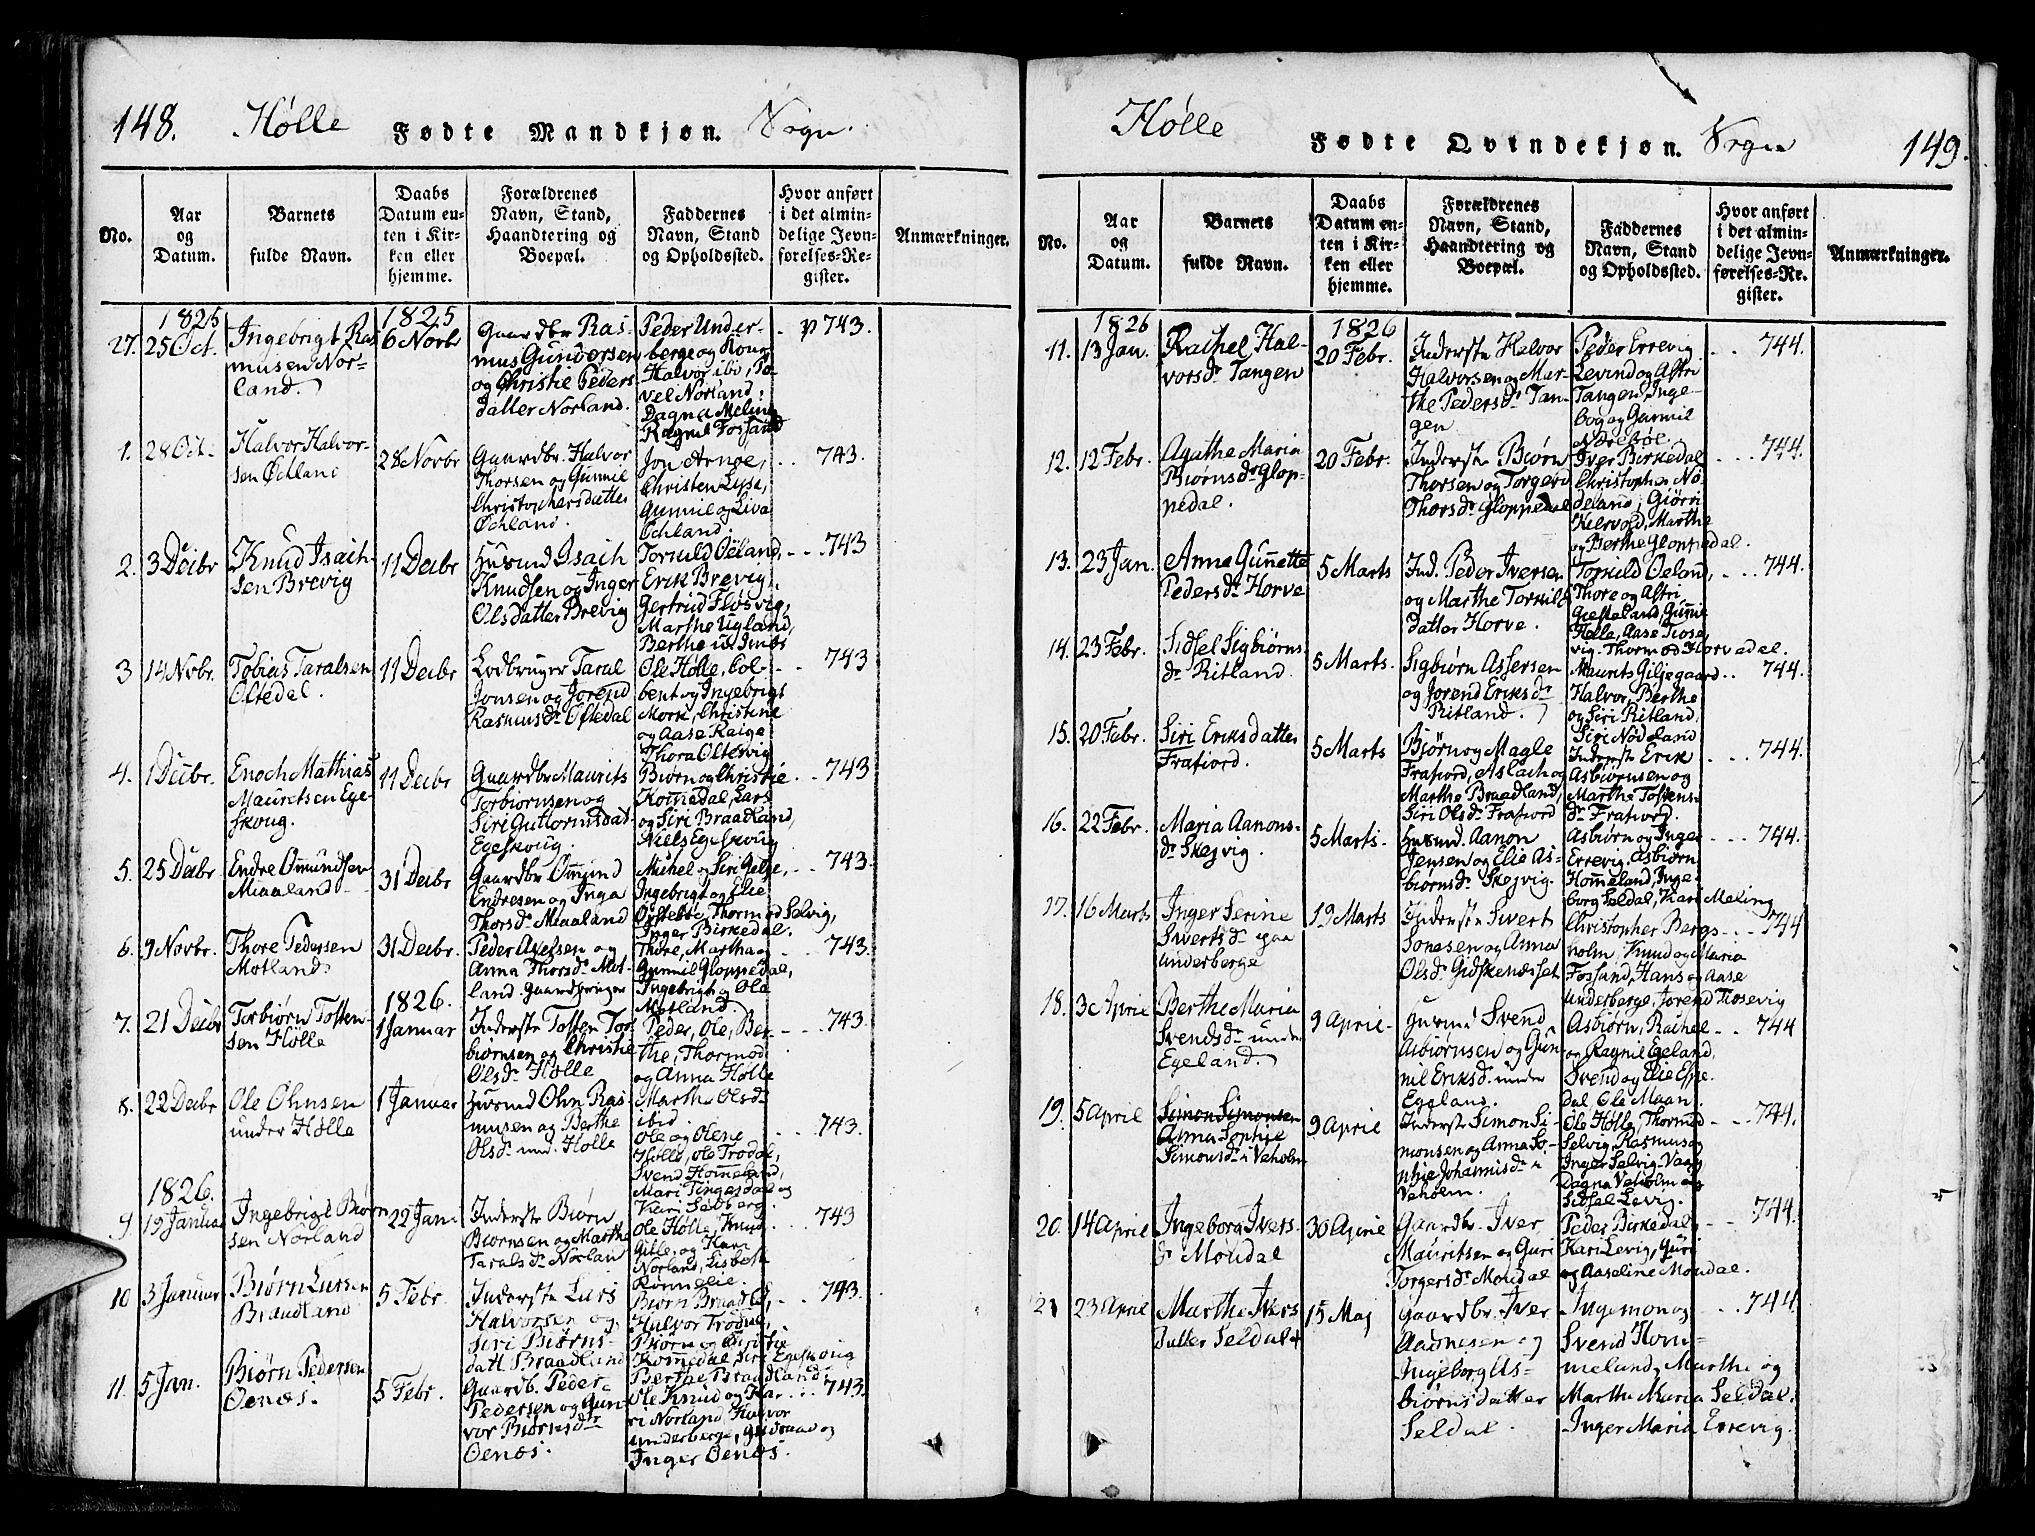 148. Hølle Fødte Mandkjøn. Sogn.
No.
Aar
og
Datum.
Barnets
fulde Navn.
Daabs
Datum en-
ten i Kir-
ken eller
hjemme.
Forældrenes
Navn, Stand,
Haandtering og
Boepæl.
Faddernes
Navn, Stand
og Opholdssted.
Hvor anført
i det almin-
delige Jevn-
førelses-Re-
gister.
Anmærkninger.
1825
27. 25 Oct.
Ingebrigt Ras
musen Nor=
land.
1825
6 Novbr
Gaardbr Ras-
mus Gunvorsen
og Christie Peders
datter Norland.
Peder Under-
berge og Kone
Halvor ibd, Pa-
vel Norland,
Dagna Meling
Ragnil Fossand
p 743.
1. 28 Oct.
Halvor Halvor-
sen Øchland
28 Novbr
Gaardbr. Halvor
Thorsen og Gunnil
Christophersdatter
Øchland.
Jon Arnøe,
Christen Lyse,
Gunnil og Siva
Øchland.
743.
2. 3 Decbr
Knud Isach-
sen Brevig
11 Decbr
Huusmd Isach
Knudsen og Inger
Olsdatter Brevig
Torkild Oeland,
Erik Brevig,
Gertrud Fløsvig,
Marthe Ugland,
743
3 14 Novbr.
Tobias Taralsen
Oltedal.
11 Decbr
Lodbruger Taral
Jonsen og Jorend
Rasmusdr Oltedal
Ole Hølle, Col-
bent og Ingebrigt
Mork, Christine
og Aase Raige
Thora Oltesvig
743
4. 1 Decbr.
Enoch Mathias
Mauritsen Ege-
skoug.
11 Decbr
Gaardbr Maurits
Torbiørnsen og
Siri Guttormsdat-
Egeskoug.
Biørn og Christie
Kommedal, Lars
og Siri Braadland,
Niels Egeskoug
743
5. 25 Decbr
Endre Ommundsen
Maaland
31 Decbr
Gaardbr Ommund
Endresen og Inga
Thorsdr Maaland
Michel og Siri Gilje,
Ingebrigt og Elie
Østebøe, Thormod Selvig,
Inger Birkedal.
743.
6. 9 Novbr.
Thore Pedersen
Motland
31 Decbr.
Peder Axelsen og
Anna Thorsdr Mot-
land. Gaardbruger
Thore, Martha og
Gunnil Gloppedal,
Ingebrigt og Ole
Motland.
743.
7. 21 Decbr
Torbiørn Tosten-
sen Hølle
1826.
1 Januar
Inderste Tosten Tor
biørnsen og Christie
Olsdr Hølle
Peder, Ole, Ber-
the, Thormod
og Anna Hølle
743.
8. 22 Decbr
Ole Ohnsen
under Hølle
1 Januar
Huusmd Ohn Ras
musen og Berthe
Olsdr und. Hølle
Marthe Olsdr
ibid.
Ole og Olene
Hølle, Ole Trodal,
Svend Hommeland,
Mari Tingesdal og
Kari Selberg.
743.
1826.
9. 19 Januar
Ingebrigt Biørn
sen Norland
22 Jan.
Inderste Biørn
Biørnsen og Marthe
Taralsdr Norlan
Ole Hølle, Knud
Gille, og Hans
Norland, Lisbeth
Rønnelie.
743
10 3 Januar
Biørn Larsen
Braadland
5 Febr
Inderste Lars
Halvorsen og
Siri Biørns-
datt Braadland
Biørn Braadld,
Halvor Trodal,
Biørn og Christie
Kommedal, Siri Egeskoug
743.
11. 5 Jan.
Biørn Pedersen
Oenæs.
5 Febr.
Gaardb. Peder
Pedersen og Gun-
vor Biørnsdr
Oenæs.
Berthe Braadland.
Ole Knud og Ka-
ri Norland, Halvor
Underberge, Gudraad og
Inger Oenæs.
743.
Hølle Fødte Qvindekjøn. Sogn 149.
No.
Aar
og
Datum.
Barnets
fulde Navn.
Daabs
Datum en-
ten i Kir-
ken eller
hjemme.
Forældrenes
Navn, Stand,
Haandtering og
Boepæl.
Faddernes
Navn, Stand
og Opholdssted.
Hvor anført
i det almin-
delige Jevn-
førelses-Re-
gister.
Anmærkninger.
1826
11. 13 Jan.
Rachel Hal-
vorsdr Tangen
1826
20 Febr.
Inderste Halvor
Halvorsen og Mar-
the Pedersdr Tan-
gen
Peder Errevig
Levind og Astri
Tangen, Inge-
bog og Gunnil
Nærebøe
744.
12. 12 Febr.
Agathe Maria
Biørnsdr Glop-
pedal.
20 Febr.
Inderste Biørn
Thorsen og Torgerd
Thorsdr Gloppedal
Iver Birkedal
Christopher No-
deland, Giørri
Kiervold, Marthe
og Berthe Gloppedal.
744.
13. 23 Jan.
Anne Gunnette
Pedersdr Horve
5 Marts
Ind. Peder Iversen
og Marthe Torkils
datter Horve.
Torkild Oeland,
Thore og Astri
Giesteland, Gunne
Helle, Aase Tiose-
vig. Thormod Horvedal.
744.
14. 23 Febr.
Sidsel Sigbiørns
dr Ritland.
5 Marts.
Sigbiørn Assersen
og Jorend Eriksdr
Ritland.
Maurits Giljegaard
Halvor, Berthe
og Siri Ritland,
Siri Nødeland
744.
15. 20 Febr.
Siri Eriksdatter
Frafiord.
5 Marts
Biørn og Magle
Frafiord, Aslach og
Marthe Braadland,
Siri Olsdr Frafiord
Inderst Erik
Asbiørnsen og
Marthe Tostens-
dr Frafiord.
744.
16. 22 Febr.
Maria Aanons-
dr Skejvig.
5 Marts.
Huusmd. Aanon
Jensen og Elie As-
biørnsdr Skejvig.
Asbiørn og Inger
Errevig, Asbiørn
Hommeland, Inge-
borg Seldal, Kari Meking
744.
17. 16 Marts
Inger Serine
Sivertsdr paa
underberge
19 Marts
Inderste Sivert
Jonasen og Anna
Olsdr Gidskenæsset
Christopher Bergs-
holm, Knud og Maria
Fossand, Hans og Aase
underberge, Jorend Tiosevig
744
18. 30 April
Berthe Maria
Svendsdr under
Egeland.
9 April
Huusmd Svend
Asbiørnsen og Gun-
nil Eriksdr under
Egeland.
Asbiørn, Rachel
og Ragnil Egeland,
Svend og Elie Espe-
dal Ole Maan.
744
19. 5 April
Simon Simonsen
Anna Sophie
Simonsdr i Veholm
9 April
Inderste Simon Si-
monsen og Anna So-
phie Johannisdr i
Veholm.
Ole Hølle, Thormod
Selvig, Rasmus og
Inger Selvig-Vaag
Dagna Veholm og
Sidsel Levig.
744.
20. 14 April
Ingeborg Ivers-
dr Moudal
30 April
Gaardbr. Iver
Mauritsen og Guri
Torgersdr Moudal
Peder Birkedal,
Kari Levig, Guri
og Aaseline Moudal.
744.
21 23 April
Marthe Ivers
datter Seldal
15 Maj
Gaardbr. Iver
Aadnesen og
Ingeborg As-
biørnsdatter
Seldal.
Ingemon og
Svend Hom-
meland, Marthe og
Marthe Maria Seldal.
Inger Maria Errevig.
744.